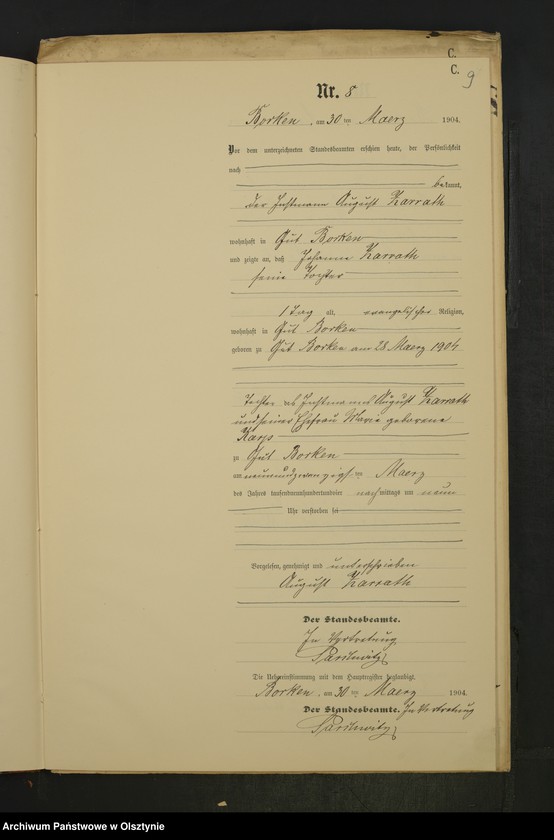 C.
C. 9
Nr. 8
Borken, am 30 ten Maerz 1904.
Vor dem unterzeichneten Standesbeamten erschien heute, der Persönlichkeit
nach
bekannt,
der Instmann August Karrath
wohnhaft in Gut Borken
und zeigte an, daß Johanne Karrath
seine Tochter
1 Tag alt, evangelischer Religion,
wohnhaft in Gut Borken
geboren zu Gut Borken am 28 Maerz 1904
Tochter des Instmanns August Karrath
und seiner Ehefrau Marie geborene
zu Gut Borken
am neunundzwanzigsten Maerz
des Jahres tausendneunhundertundvier nachmittags um neun
Uhr verstorben sei
Vorgelesen, genehmigt und unterschrieben
August Karrath
Der Standesbeamte.
In Vertretung
Die Uebereinstimmung mit dem Hauptregister beglaubigt.
Borken, am 30 ten Maerz 1904.
Der Standesbeamte. In Vertretung
Archiwum Państwowe w Olsztynie